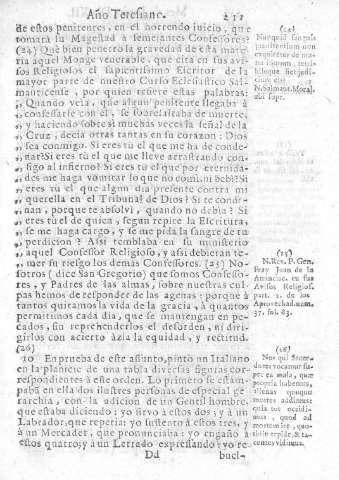 Año Teresiano. 211
de estos penitentes, en el horrendo juicio, que
tomará su Magestad à semejantes Confessores?
(24) Què bien penetrò la gravedad de esta mate-
ria aquel Monge venerable, que cita en sus avi-
sos Religiosos el sapientissimo Escritor de la
mayor parte de nuestro Curso Eclesiastico Sal-
manticense, por quien refiere estas palabras:
„ Quando veìa, que algun penitente llegaba à
„ confessarse con èl, se sobresaltaba de muerte,
„ y haciendo sobre sì muchas veces la señal de la
„ Cruz, decia otras tantas en su corazon: Dios
„ sea conmigo. Si eres tù el que me ha de conde-
„ nar? Si eres tù el que me lleve arrastrando con-
„ sigo al infierno? Si eres tù el que por eternida-
„ des me haga vomitar lo que no comì, ni bebì? Si
„ eres tù el que algun dia presente contra mì
„ querella en el Tribunal de Dios? Si te conde-
„ nan, porque te absolvì, quando no debia? Si
„ eres tù el de quien, segun repite la Escritura,
„ se me haga cargo, y se me pida la sangre de tu
„ perdicion? Assi temblaba en su ministerio
aquel Confessor Religioso, y assi debieran te-
mer su riesgo los demàs Confessores. (25) No-
sotros (dice San Gregorio) que somos Confesso-
res, y Padres de las almas, sobre nuestras cul-
pas hemos de responder de las agenas: porque à
tantos quitamos la vida de la gracia, à quantos
permitimos cada dia, que se mantengan en pe-
cados, sin reprehenderlos el desorden, ni diri-
girlos con acierto àzia la equidad, y rectitud.
(26)
10 En prueba de este assunto, pintò un Italiano
en la planicie de una tabla diversas figuras cor-
respondientes à este orden. Lo primero se estam-
paba en ella dos ilustres personas de especial ge-
rarchìa, con la adicion de un Gentil hombre,
que estaba diciendo: yo sirvo à estos dos; y à un
Labrador, que repetia: yo sustento à estos tres, y
à un Mercader, que pronunciaba: yo engaño à
estos quatro; y à un Letrado expressando: yo re-
Dd bucl-
(24)
N. Salmant. Moral.
ubi supr.
(25)
N. Rev. P. Gen.
Fray Juan de la
Annunciac. en sus
Avisos Religios.
part. 2. de los
num.
37. fol. 83.
(26)
Nos qui Sacer-
dotes vocamur su-
per ea mala, quæ
propria habemus,
alienas quoque
mortes addimus:
quia tot occidi-
mus, quod ad
mortem ire, quo-
tidie tepide, & ta-
centes vidimus.